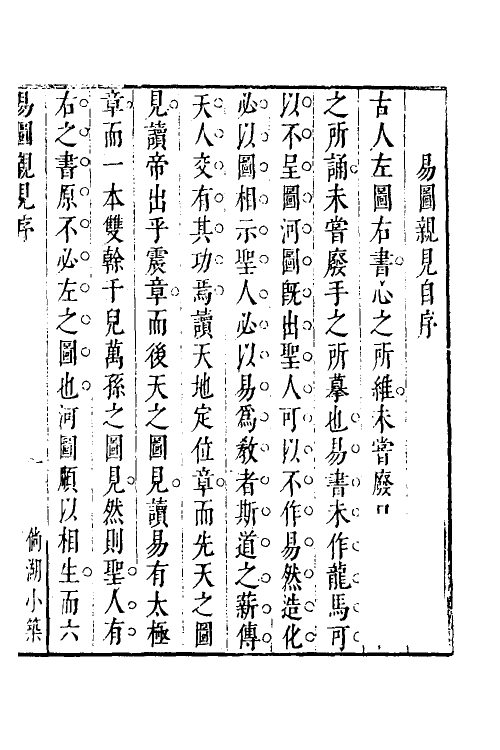 易圖親見自序
古人左圖右書心之所維未嘗廢口
之所誦未嘗廢手之所摹也易書未作龍馬可
以不呈圖河圖旣出聖人可以不作易然造化
必以圖相示聖人必以易爲敎者斯道之薪傳
天人交有其功焉讀天地定位章而先天之圖
見讀帝出乎震章而後天之圖見讀易有太極
章而一本雙榦千兒萬孫之圖見然則聖人有
右之書原不必左之圖也河圖順以相生而六
易圖親見序
一
倘湖小築